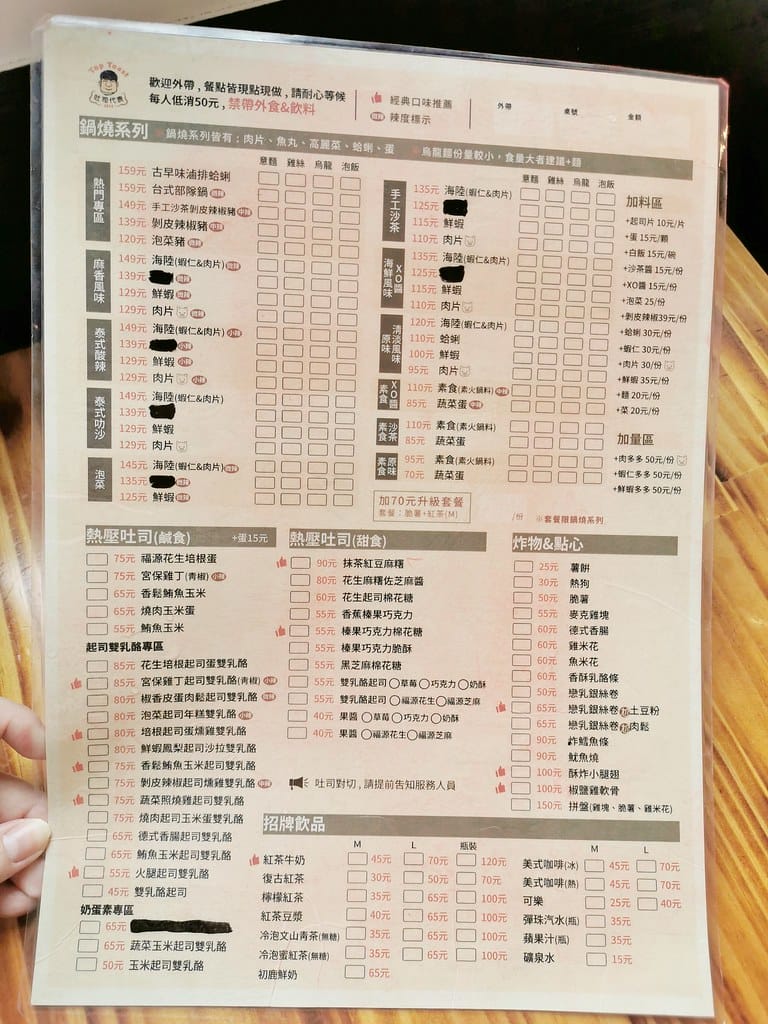 Top Toast
歡迎外帶，餐點皆現點現做，請耐心等候
每人低消50元，禁帶外食&飲料
經典口味推薦
微辣 辣度標示
外帶 桌號 金額
鍋燒系列 ※鍋燒系列皆有：肉片、魚丸、高麗菜、蛤蜊、蛋 ※烏龍麵份量較小，食量大者建議+麵
意麵 雞絲 烏龍 泡飯
熱門專區
159元 古早味滷排蛤蜊
159元 台式部隊鍋 微辣
149元 手工沙茶剝皮辣椒豬 中辣
139元 剝皮辣椒豬 微辣
120元 泡菜豬 微辣
麻香風味
149元 海陸(蝦仁&肉片) 微辣
139元 微辣
129元 鮮蝦 微辣
129元 肉片 微辣
泰式酸辣
149元 海陸(蝦仁&肉片) 小辣
139元 小辣
129元 鮮蝦 小辣
129元 肉片 小辣
泰式叻沙
149元 海陸(蝦仁&肉片)
139元
129元 鮮蝦
129元 肉片
泡菜
145元 海陸(蝦仁&肉片) 微辣
135元 微辣
125元 鮮蝦 微辣
意麵 雞絲 烏龍 泡飯
手工沙茶
135元 海陸(蝦仁&肉片)
125元
115元 鮮蝦
110元 肉片
XO醬海鮮風味
135元 海陸(蝦仁&肉片)
125元
115元 鮮蝦
110元 肉片
清淡風味原味
120元 海陸(蝦仁&肉片)
110元 蛤蜊
100元 鮮蝦
95元 肉片
XO醬素食
110元 素食(素火鍋料) 中辣
85元 蔬菜蛋 中辣
沙茶素食
110元 素食(素火鍋料)
85元 蔬菜蛋
原味素食
95元 素食(素火鍋料)
70元 蔬菜蛋
加70元升級套餐
套餐：脆薯+紅茶(M)
/份 ※套餐限鍋燒系列
加料區
+起司片 10元/片
+蛋 15元/顆
+白飯 15元/碗
+沙茶醬 15元/份
+XO醬 15元/份
+泡菜 25/份
+剝皮辣椒39元/份
+蛤蜊 30元/份
+蝦仁 30元/份
+肉片 30元/份
+鮮蝦 35元/份
+麵 20元/份
+菜 20元/份
加量區
+肉多多 50元/份
+蝦仁多多 50元/份
+鮮蝦多多 50元/份
熱壓吐司(鹹食) +蛋15元
75元 福源花生培根蛋
75元 宮保雞丁(青椒) 小辣
65元 香鬆鮪魚玉米
65元 燒肉玉米蛋
55元 鮪魚玉米
起司雙乳酪專區
85元 花生培根起司蛋雙乳酪
85元 宮保雞丁起司雙乳酪(青椒) 小辣
80元 椒香皮蛋肉鬆起司雙乳酪 微辣
80元 泡菜起司年糕雙乳酪 小辣
80元 培根起司蛋燻雞雙乳酪
80元 鮮蝦鳳梨起司沙拉雙乳酪
75元 香鬆鮪魚玉米起司雙乳酪
75元 剝皮辣椒起司燻雞雙乳酪 中辣
75元 蔬菜照燒雞起司雙乳酪
75元 燒肉起司玉米蛋雙乳酪
65元 德式香腸起司雙乳酪
65元 鮪魚玉米起司雙乳酪
55元 火腿起司雙乳酪
45元 雙乳酪起司
奶蛋素專區
65元
65元 蔬菜玉米起司雙乳酪
50元 玉米起司雙乳酪
熱壓吐司(甜食)
90元 抹茶紅豆麻糬
80元 花生麻糬佐芝麻醬
60元 花生起司棉花糖
55元 香蕉榛果巧克力
55元 榛果巧克力棉花糖
55元 榛果巧克力脆酥
55元 黑芝麻棉花糖
55元 雙乳酪起司 草莓 巧克力 奶酥
55元 雙乳酪起司 福源花生 福源芝麻
40元 果醬 草莓 巧克力 奶酥
40元 果醬 福源花生 福源芝麻
吐司對切，請提前告知服務人員
炸物&點心
25元 薯餅
30元 熱狗
50元 脆薯
55元 麥克雞塊
60元 德式香腸
60元 雞米花
60元 魚米花
60元 香酥乳酪條
50元 戀乳銀絲卷
65元 戀乳銀絲卷 土豆粉
65元 戀乳銀絲卷 肉鬆
90元 炸鱈魚條
90元 魷魚燒
100元 酥炸小腿翅
100元 椒鹽雞軟骨
150元 拼盤(雞塊、脆薯、雞米花)
招牌飲品
M L 瓶裝
紅茶牛奶 45元 70元 120元
復古紅茶 30元 50元 70元
檸檬紅茶 35元 65元 100元
紅茶豆漿 40元 65元 100元
冷泡文山青茶(無糖) 35元 65元 100元
冷泡蜜紅茶(無糖) 35元 65元 100元
初鹿鮮奶 65元
M L
美式咖啡(冰) 45元 70元
美式咖啡(熱) 45元 70元
可樂 25元 40元
彈珠汽水(瓶) 35元
蘋果汁(瓶) 35元
礦泉水 15元